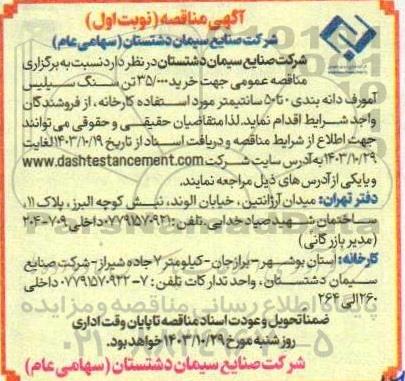 آگهی مناقصه (نوبت اول)
شرکت صنایع سیمان دشتستان (سهامی عام)
شرکت صنایع سیمان دشتستان در نظر دارد نسبت به برگزاری
مناقصه عمومی جهت خرید ۳۵/۰۰۰ تن سنگ سیلیس
آمورف دانه بندی ۰ تا ۵۰ سانتیمتر مورد استفاده کارخانه، از فروشندگان
واجد شرایط اقدام نماید. لذا متقاضیان حقیقی و حقوقی می توانند
جهت اطلاع از شرایط مناقصه و دریافت اسناد از تاریخ ۱۴۰۳/۱۰/۱۹ لغایت
۱۴۰۳/۱۰/۲۹ به آدرس سایت شرکت www.dashtestancement.com
و یا یکی از آدرس های ذیل مراجعه نمایند.
دفتر تهران: میدان آرژانتین، خیابان الوند، نبش کوچه البرز، پلاک ۱۱،
ساختمان شهید صیاد خدایی. تلفن: ۰۷۷۹۱۵۷۰۹۲۱ داخلی ۷۰۹-۲۰۴
(مدیر بازرگانی)
کارخانه: استان بوشهر- برازجان- کیلومتر ۷ جاده شیراز- شرکت صنایع
سیمان دشتستان، واحد تدارکات تلفن: ۷-۰۷۷۹۱۵۷۰۹۲۲ داخلی
۲۶۰ الی ۲۶۴
ضمنا تحویل و عودت اسناد مناقصه تا پایان وقت اداری
روز شنبه مورخ ۱۴۰۳/۱۰/۲۹ خواهد بود.
شرکت صنایع سیمان دشتستان (سهامی عام)